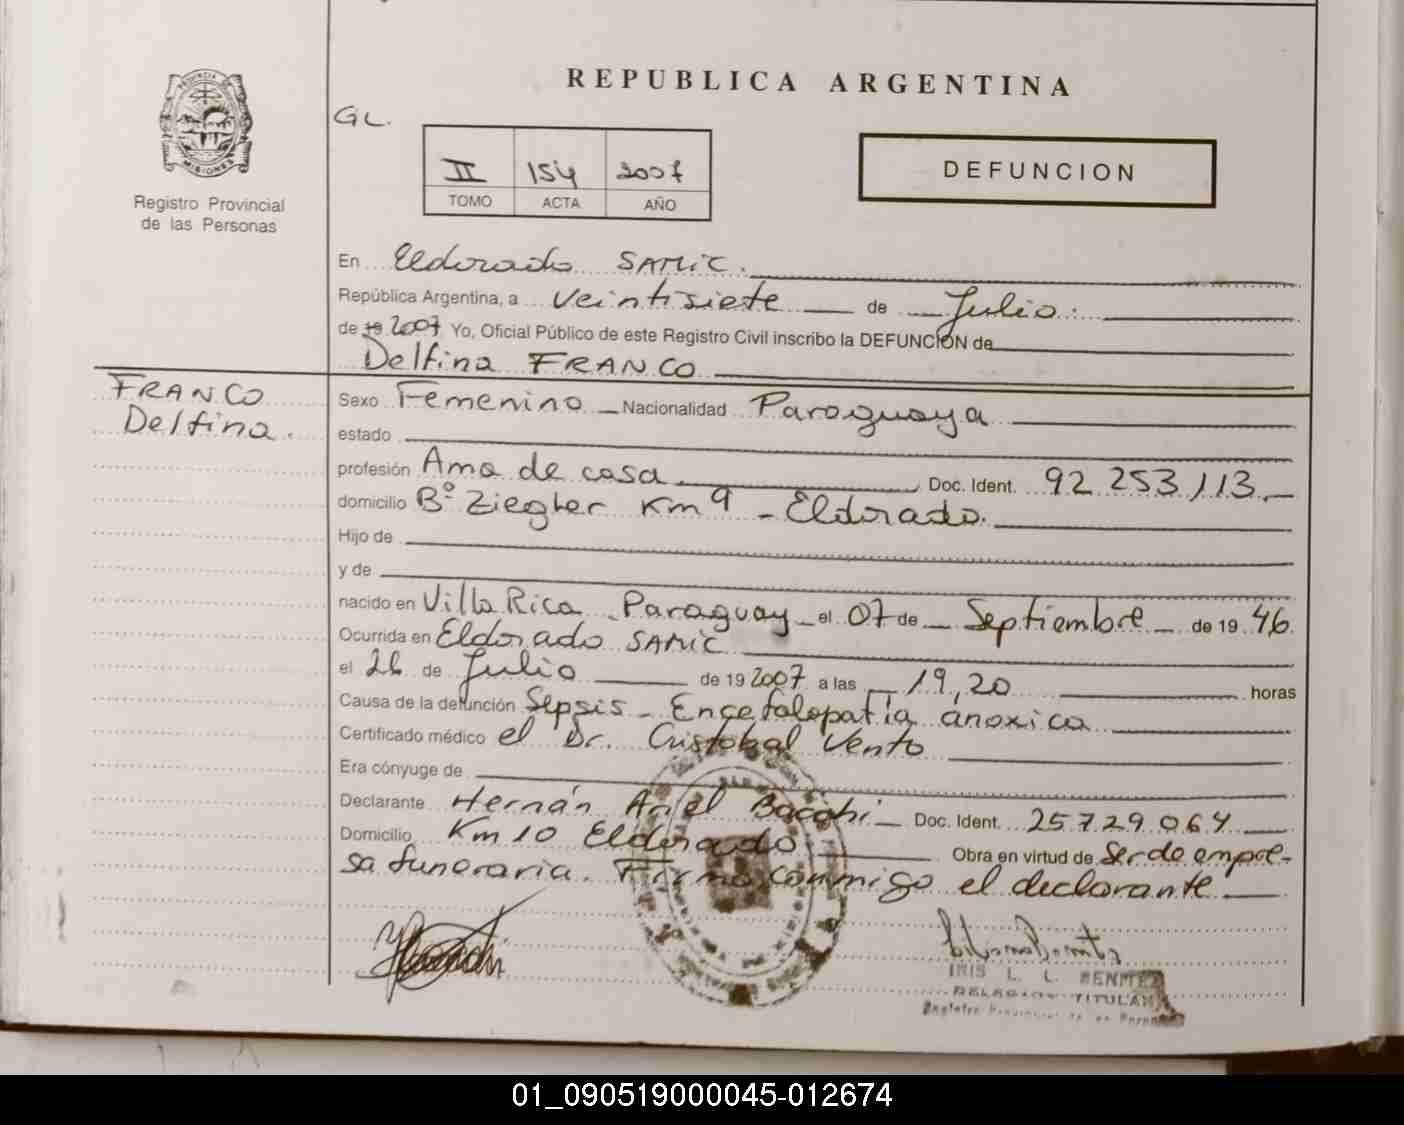 REPUBLICA ARGENTINA
GL.
II 154 2007
TOMO ACTA AÑO
DEFUNCION
PROVINCIA
MISIONES
Registro Provincial
de las Personas
En Eldorado SAMIC.
República Argentina, a veintisiete de Julio.
de 19 2007 Yo, Oficial Público de este Registro Civil inscribo la DEFUNCIÓN de
Delfina FRANCO
FRANCO
Delfina.
Sexo Femenino Nacionalidad Paraguaya
estado
profesión Ama de casa Doc. Ident. 92 253 113.
domicilio Bº Ziegher Km 9 - Eldorado.
Hijo de
y de
nacido en Villa Rica Paraguay el 07 de Septiembre de 19 46.
Ocurrida en Eldorado SAMIC
el 26 de Julio de 19 2007 a las 19,20 horas
Causa de la defunción Sepsis - Encefalopatía anoxica
Certificado médico el Dr. Cristobal Vento
Era cónyuge de
Declarante Hernán Ariel Bacahi Doc. Ident. 25 729 064
Domicilio Km 10 Eldorado Obra en virtud de Ser de empre-
sa funeraria. Firma conmigo el declarante
IRIS L. L. BENITEZ
DELEGADA TITULAR
Registro Provincial de las Personas
01_090519000045-012674